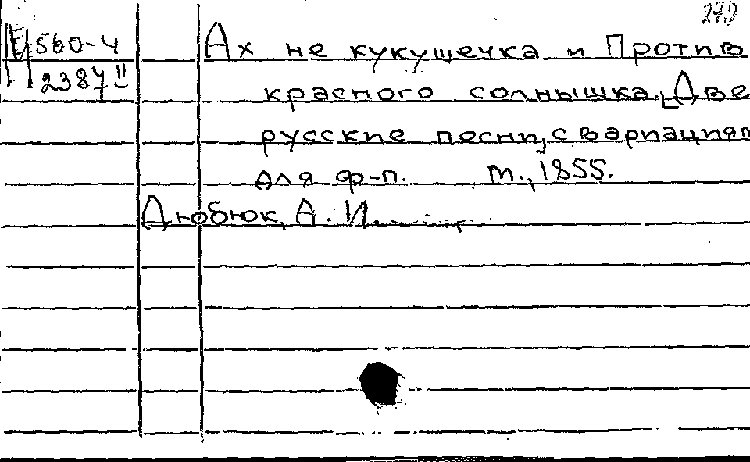 Ах не кукушечка и Против
560-4
2387 II
красного солнышка. Две
русские песни, с вариациям
для ф-п. М., 1855.
Дюбюк, А. И.